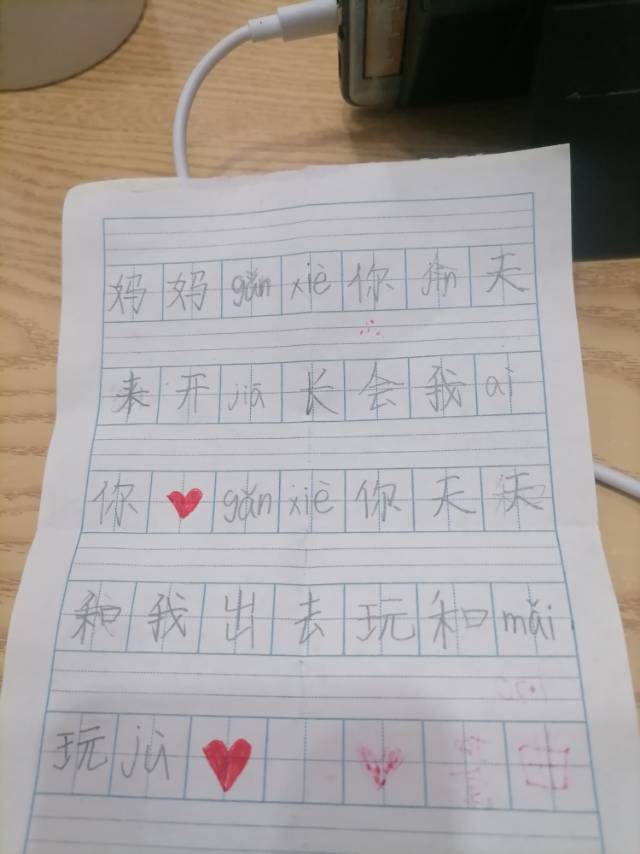 妈妈gǎn xiè你jīn天
来开jiā长会我ài
你gǎn xiè你天天
和我出去玩和mǎi
玩jù